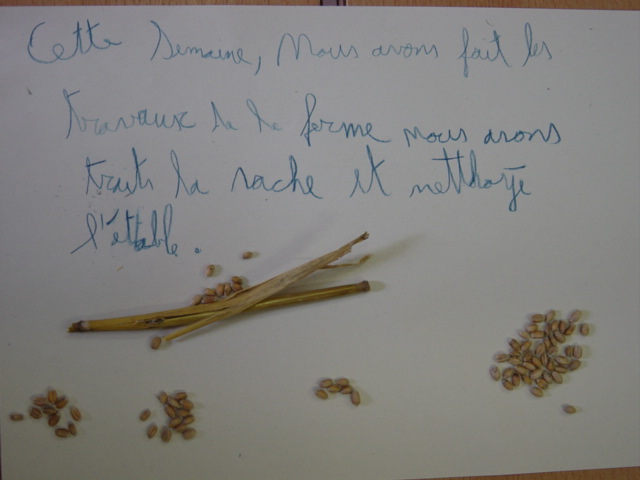 Cette semaine, nous avons fait les
travaux de la ferme nous avons
traits la vache et nettboyé
l'étable.